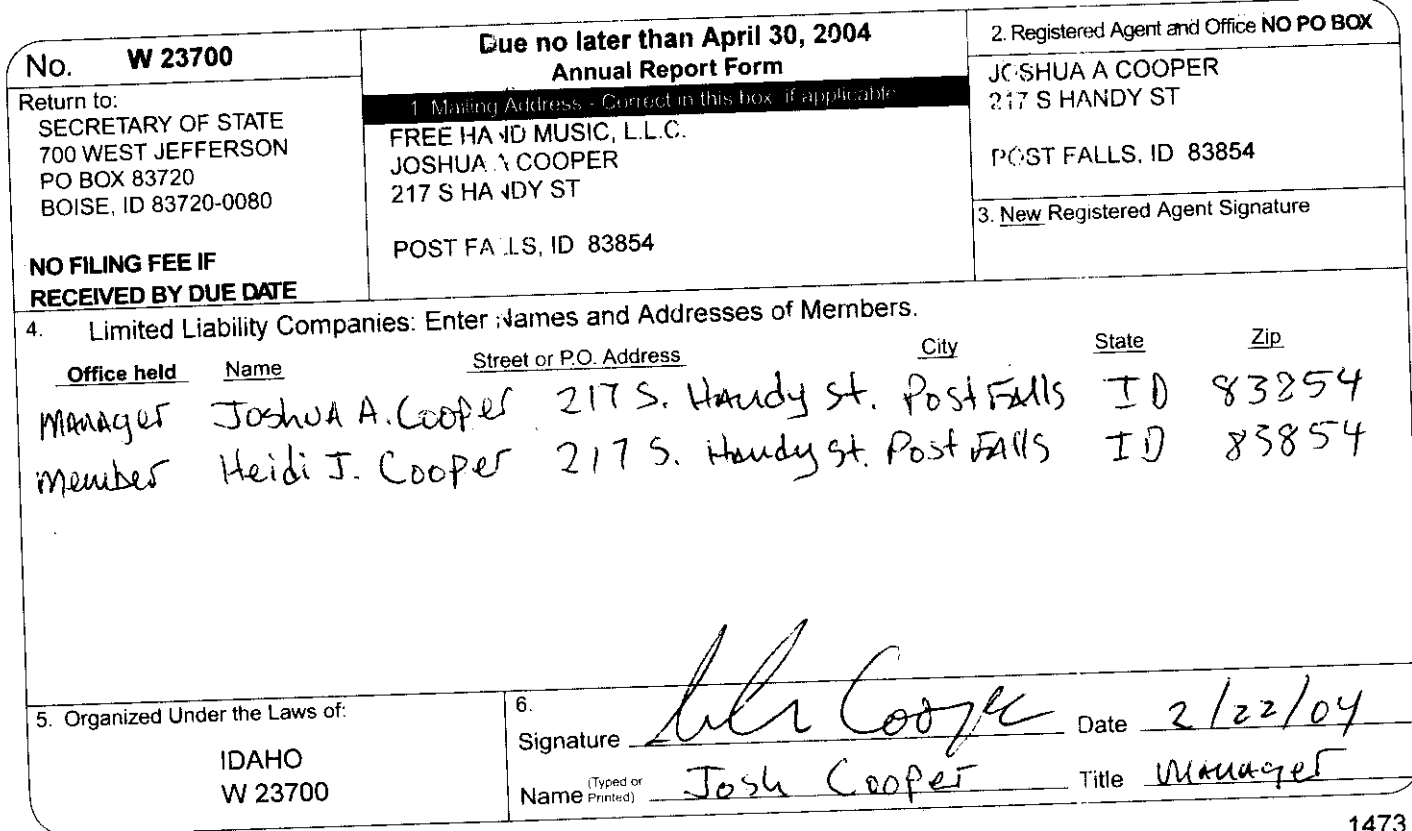 No. W 23700
Return to:
SECRETARY OF STATE
700 WEST JEFFERSON
PO BOX 83720
BOISE, ID 83720-0080
NO FILING FEE IF
RECEIVED BY DUE DATE
Due no later than April 30, 2004
Annual Report Form
1. Mailing Address - Correct in this box, if applicable
FREE HAND MUSIC, L.L.C.
JOSHUA A COOPER
217 S HANDY ST
POST FALLS, ID 83854
2. Registered Agent and Office NO PO BOX
JOSHUA A COOPER
217 S HANDY ST
POST FALLS, ID 83854
3. New Registered Agent Signature
4. Limited Liability Companies: Enter Names and Addresses of Members.
Office held Name Street or P.O. Address City State Zip
Manager Joshua A. Cooper 217 S. Handy St. Post Falls ID 83254
Member Heidi J. Cooper 217 S. Handy St. Post Falls ID 83854
5. Organized Under the Laws of:
IDAHO
W 23700
6.
Signature Cooper Date 2/22/04
Name (Typed or Printed) Josh Cooper Title Manager
1473